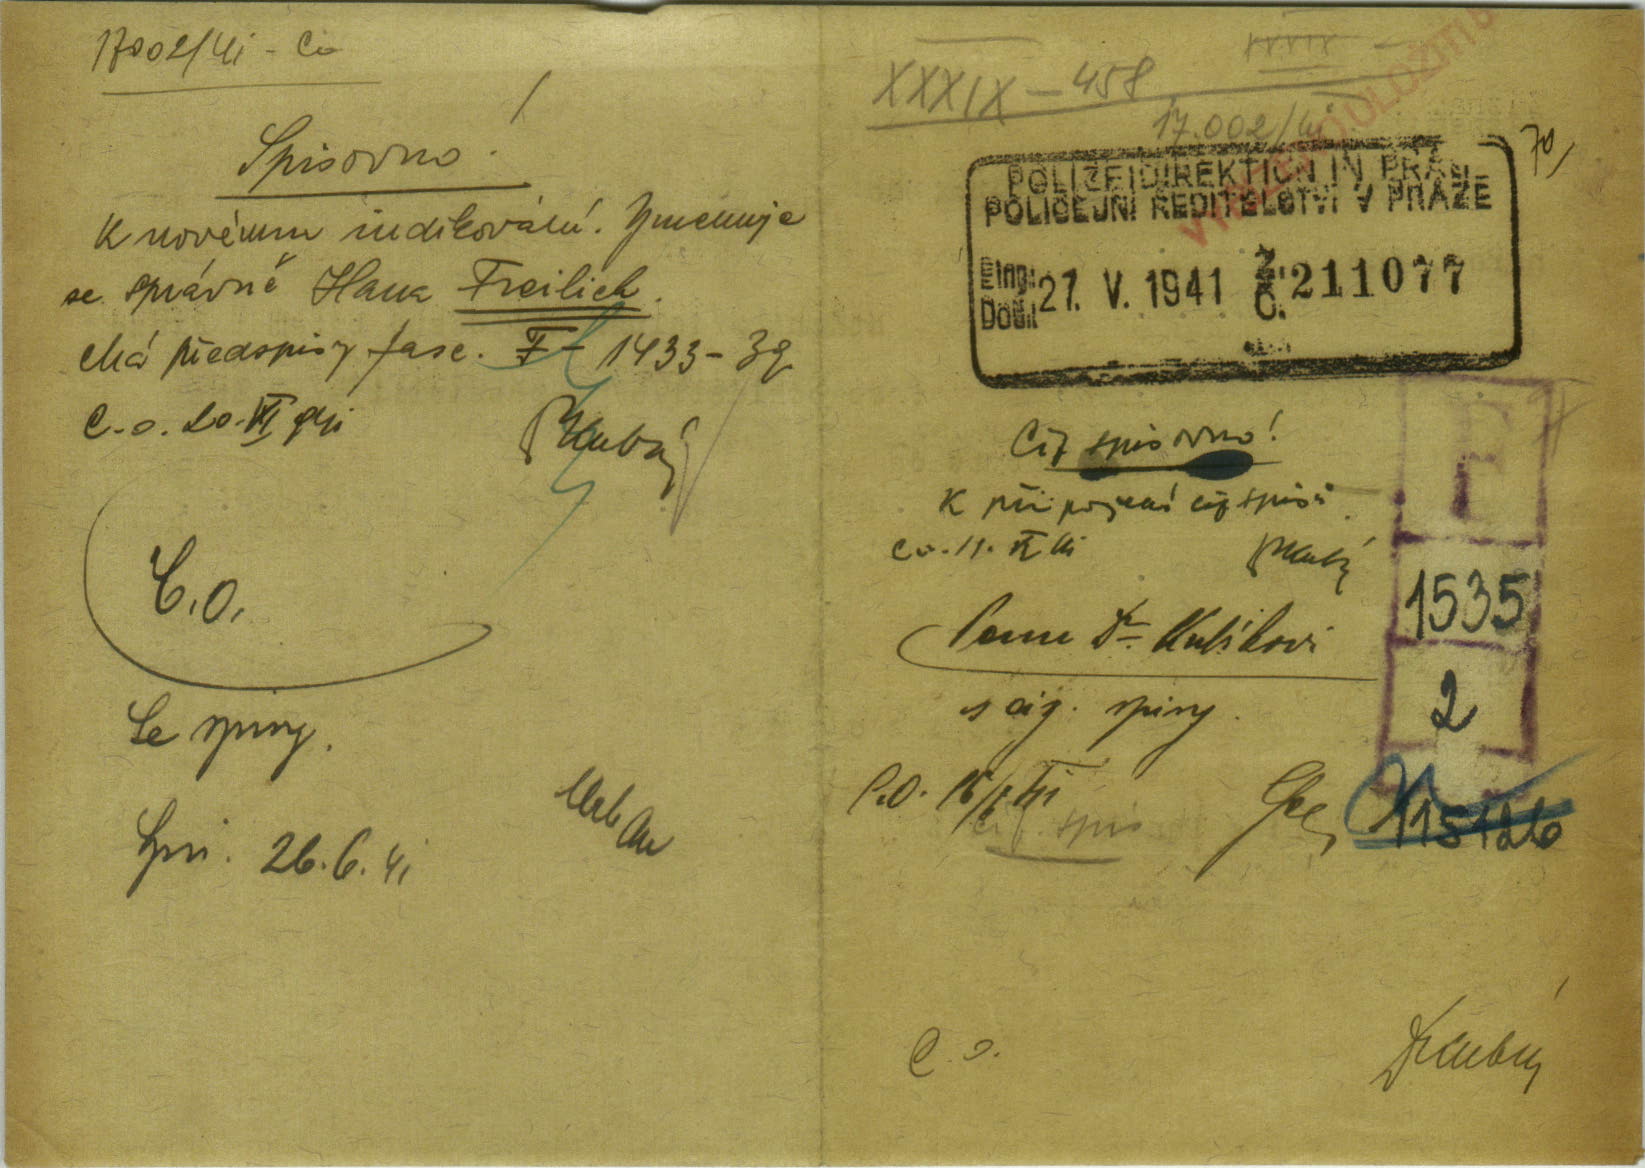 17002/41 - Co
Spisovno!
K novému indikování. Jmenuje
se správně Hana Freilich.
Má předspisy fasc. F - 1433-39
C.o. 20.VI 41
C.O.
Se spisy.
26.6.41
XXXIX
XXXIX - 458
17.002/41
70/
POLIZEIDIREKTION IN PRAG
POLICEJNÍ ŘEDITELSTVÍ V PRAZE
Eing.
Došlo 27. V. 1941 Ž. Č. 211077
F
Ciz spisovno!
K připojení ciz spisů.
C.o. 11. VI 41
1535
Panu Dr Kubíkovi
s ciz. spisy.
2
C.O. 16/6 41
ciz. spis
115126
C.o.